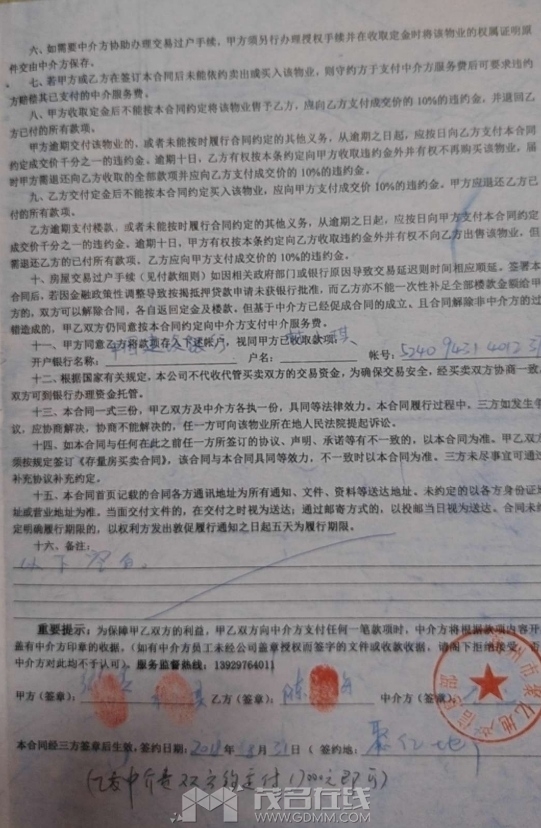 六、如需要中介方协助办理交易过户手续，甲方须另行办理授权手续并在收取定金时将该物业的权属证明原
件交由中介方保存。
七、若甲方或乙方在签订本合同后未能依约卖出或买入该物业，则守约方于支付中介方服务费后可要求违约
方赔偿其已支付的中介方服务费。
八、甲方收取定金后不能按本合同约定将该物业售予乙方，应向乙方支付成交价的 10%的违约金，并退回乙
方已付的所有款项。
甲方逾期交付该物业的、或者未能按时履行合同约定的其他义务，从逾期之日起，应按日向乙方支付本合同
约定成交价千分之一的违约金。逾期十日，乙方有权按本条约定向甲方收取违约金外并有权不再购买该物业，届
时甲方需退还向乙方收取的全部款项并应向乙方支付成交价的 10%的违约金。
九、乙方交付定金后不能按本合同约定买入该物业，应向甲方支付成交价 10%的违约金。甲方应退还乙方已
付的所有款项。
乙方逾期支付楼款，或者未能按时履行合同约定的其他义务，从逾期之日起，应按日向甲方支付本合同约定
成交价千分之一的违约金。逾期十日，甲方有权按本条约定向乙方收取违约金外并有权不向乙方出售该物业，但
需退还乙方的已付所有款项。乙方应向甲方支付成交价的 10%的违约金。
十、房屋交易过户手续（见付款细则）如因相关政府部门或银行原因导致交易延迟则时间相应顺延。签署本
合同后，若因金融政策性调整导致按揭抵押贷款申请未获银行批准，而乙方亦不能一次性补足全部楼款金额给甲
方的，双方可以解除合同，各自返回定金及楼款，但基于中介方已经促成合同的成立、且合同解除非中介方的过
错造成的，甲乙双方仍同意按本合同约定向中介方支付中介服务费。
十一、甲方同意乙方将款项存入下述帐户，视同甲方已收取款项，
开户银行名称： 户名： 琪 帐号：5240 9431 4012 3
十二、根据国家有关规定，本公司不代收代管买卖双方的交易资金，为确保交易安全，经买卖双方协商一致，
双方可到银行办理资金托管。
十三、本合同一式三份，甲乙双方及中介方各执一份，具同等法律效力。本合同履行过程中，三方如发生争
议，应协商解决，协商不能解决的，任一方可向该物业所在地人民法院提起诉讼。
十四、如本合同与任何在此之前任一方所签订的协议、声明、承诺等有不一致的，以本合同为准。甲乙双方
须按规定签订《存量房买卖合同》，该合同与本合同具同等效力，不一致时以本合同为准。三方未尽事宜可通过
补充协议补充约定。
十五、本合同首页记载的合同各方通讯地址为所有通知、文件、资料等送达地址。未约定的以各方身份证地
址或营业地址为准。当面交付文件的，在交付之时视为送达；通过邮寄方式的，以投邮当日视为送达。合同未约
定明确履行期限的，以权利方发出敦促履行通知之日起五天为履行期限。
十六、备注：
以下空白。
重要提示：为保障甲乙双方的利益，甲乙双方向中介方支付任何一笔款项时，中介方将根据款项内容开
盖有中介方印章的收据，（如有中介方员工未经公司盖章授权而签字的文件或收款收据，请阁下拒绝接受，
中介方对此均不予认可）。服务监督热线：13929764011
甲方（签章）： 乙方（签章）：陈 中介方（签章）：
本合同经三方签章后生效，签约日期：2014年 8月31日（ 签约地： 聚亿地
（乙方中介费双方约定付17000元即可）
茂名在线
WWW.GDMM.COM